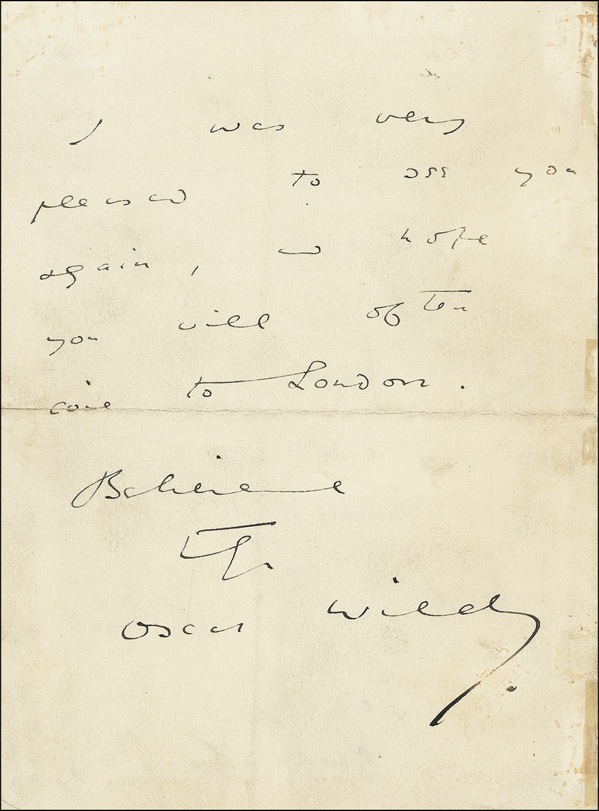 I was very
pleased to see you
again, and hope
you will often
come to London.
Believe me
Oscar Wilde